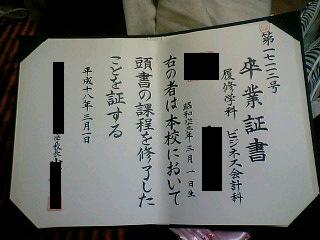 第一七二三号
卒業証書
履修学科 ビジネス会計科
昭和六三年三月一日生
右の者は本校において
頭書の課程を修了した
ことを証する
平成十八年三月一日